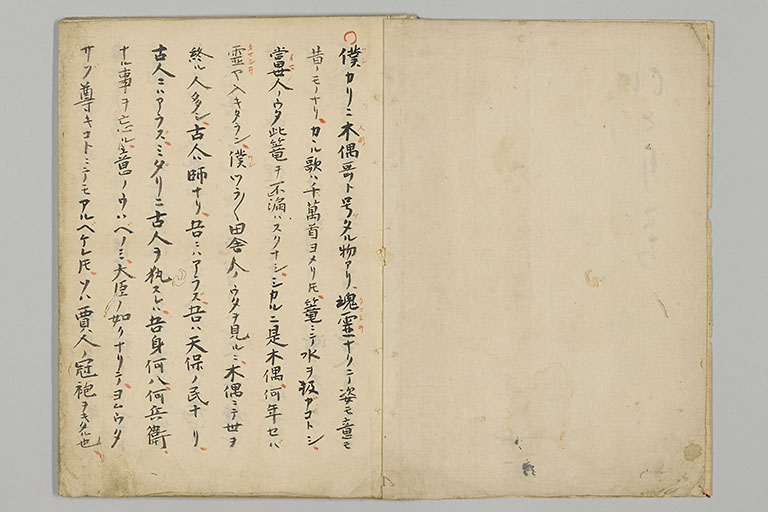 僕カリニ木偶哥ト号タル物アリ魂霊ナクシテ姿モ意モ
昔ノモノナリカヽル歌ハ千萬首ヨメリ𪜈籠ニテ水ヲ汲カコトシ
當世人ノウタ此籠ヲ不漏ハスクナシシカルニ是木偶何年セバ
霊ヤ入キタラン僕ツラ〱田舎人ノウタヲ見ルニ木偶ニテ世ヲ
終ル人多シ古人ハ師ナリ吾ニハアラズ吾ハ天保ノ民ナリ
古人ニハアラズミダリニ古人ヲ執スレハ吾身何八何兵衛
ナル事ヲ忘ル意ノウハベノミ大臣ノ如クナリテヨムウタ
サゾ尊キコトニテモアルベケレ𪜈ソハ賈人ノ冠袍ヲキタル也